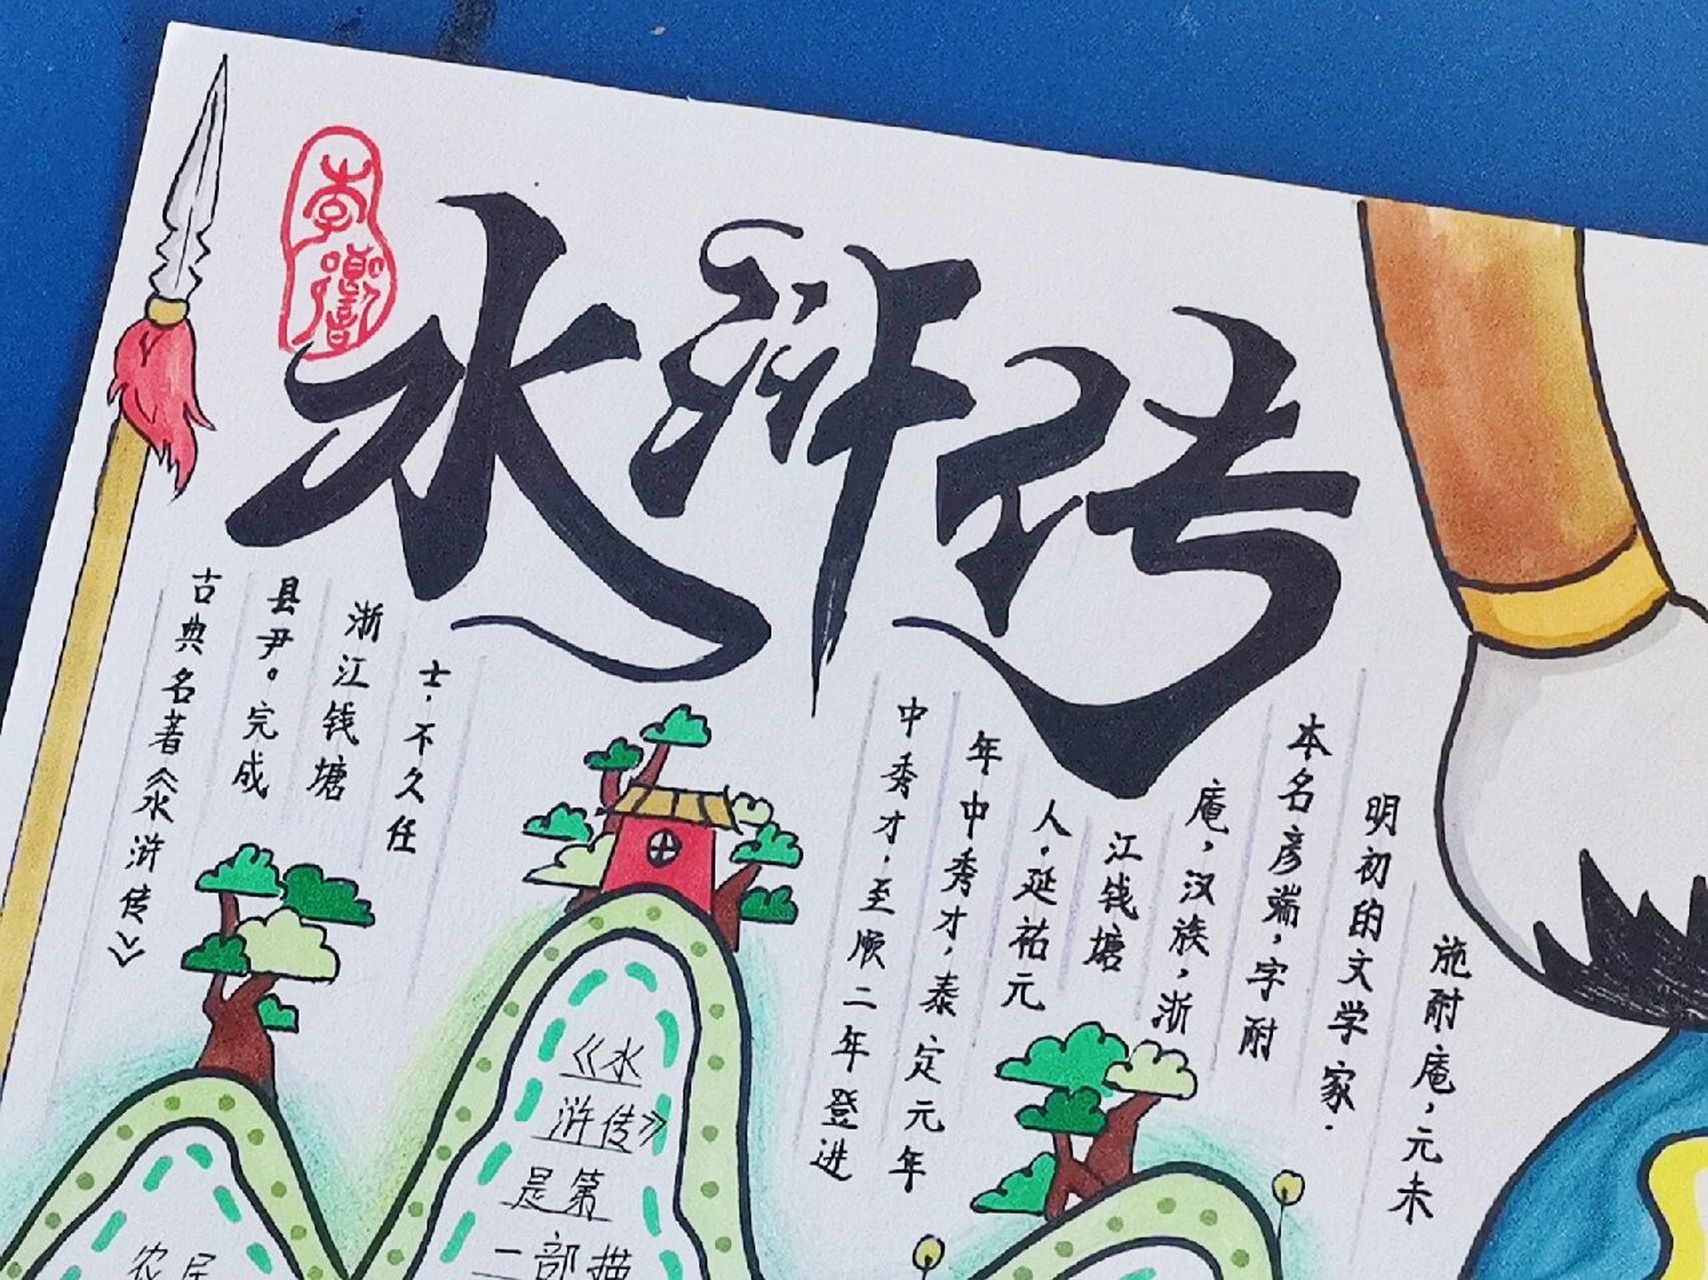 水浒传
施耐庵，元末
明初的文学家.
本名彦端，字耐
庵，汉族，浙
江钱塘
人.延祐元
年中秀才，泰定元年
中秀才.至顺二年登进
士.不久任
浙江钱塘
县尹。完成
古典名著《水浒传》
《水
浒传》
是第
一部描
农民